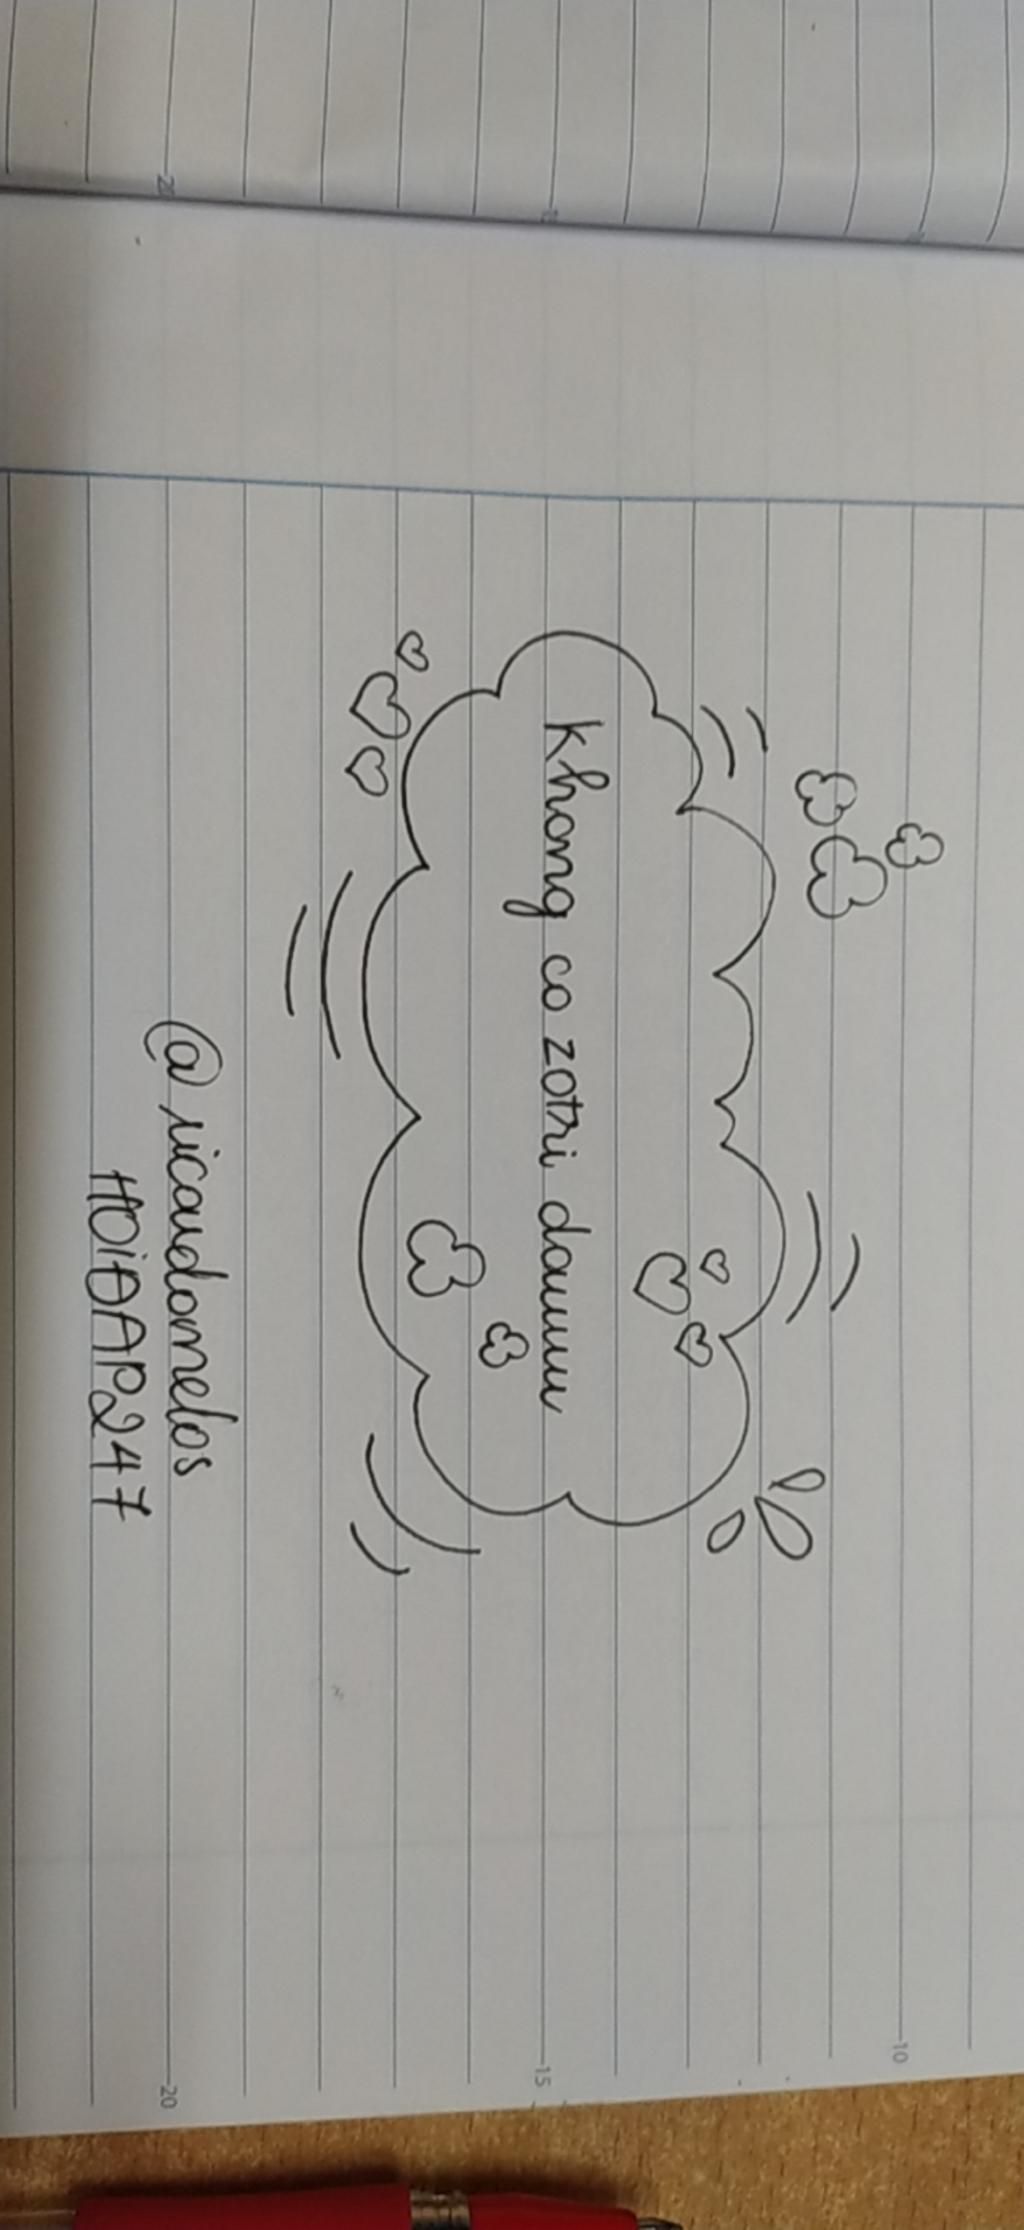 khong co zotri dauuu
@ ricaudomelos
HOIĐAP247
20
15
10
15
20